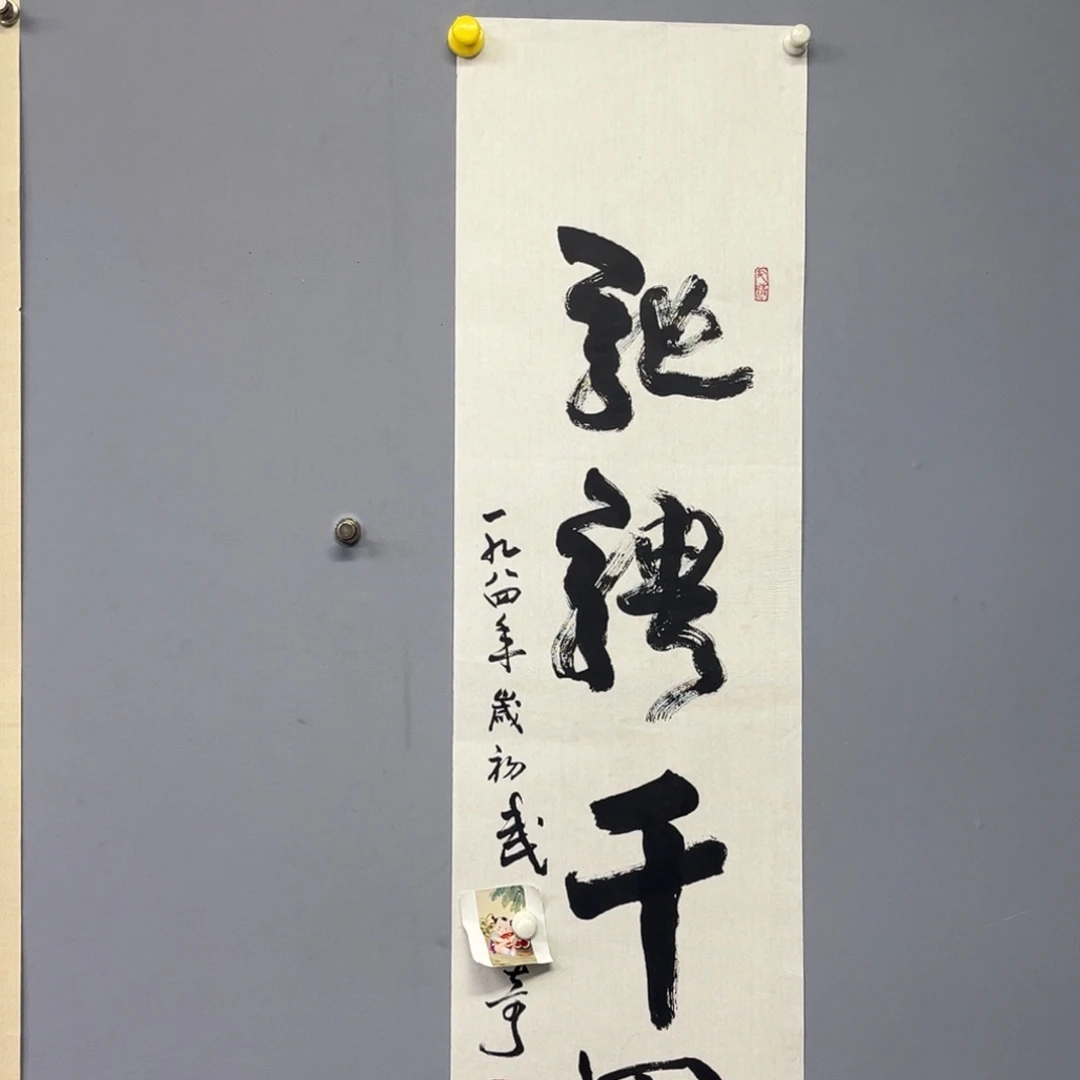 驰骋千
一九八四年岁初武